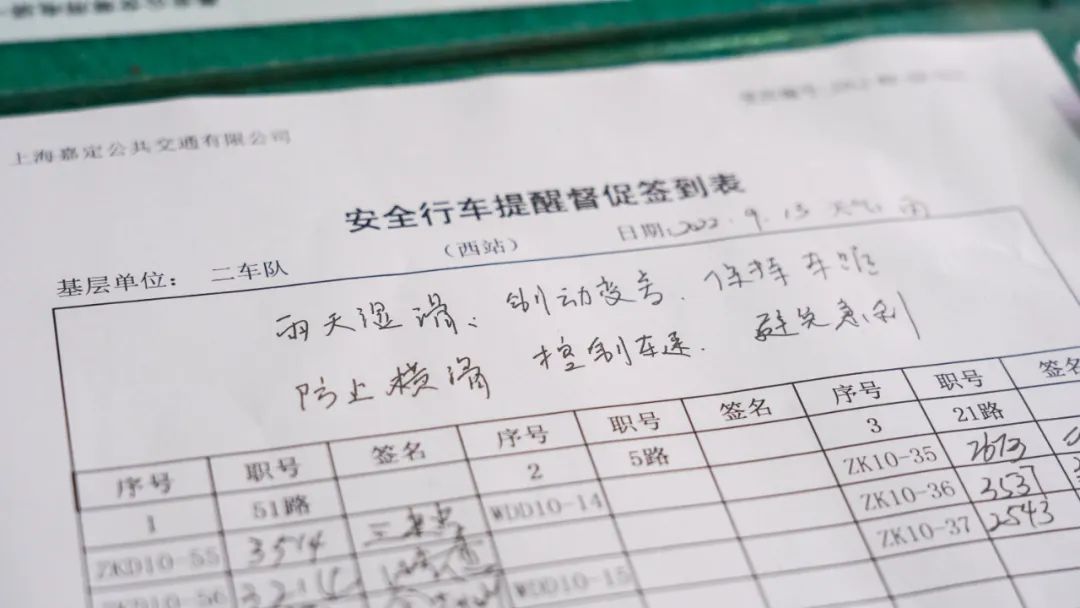 上海嘉定公共交通有限公司
安全行车提醒督促签到表
(西站) 日期: 2022.9.15 天气: 雨
基层单位: 二车队
雨天湿滑、制动变专、保持车距
防止横滑 控制车速. 避免急刹
序号 职号 签名 序号 职号 签名 序号 职号 签名
1 51路 2 5路 3 21路
ZKD10-55 3514 WDD10-14 ZK10-35 2673
ZKD10-56 WDD10-15 ZK10-36 3537
ZK10-37 2543